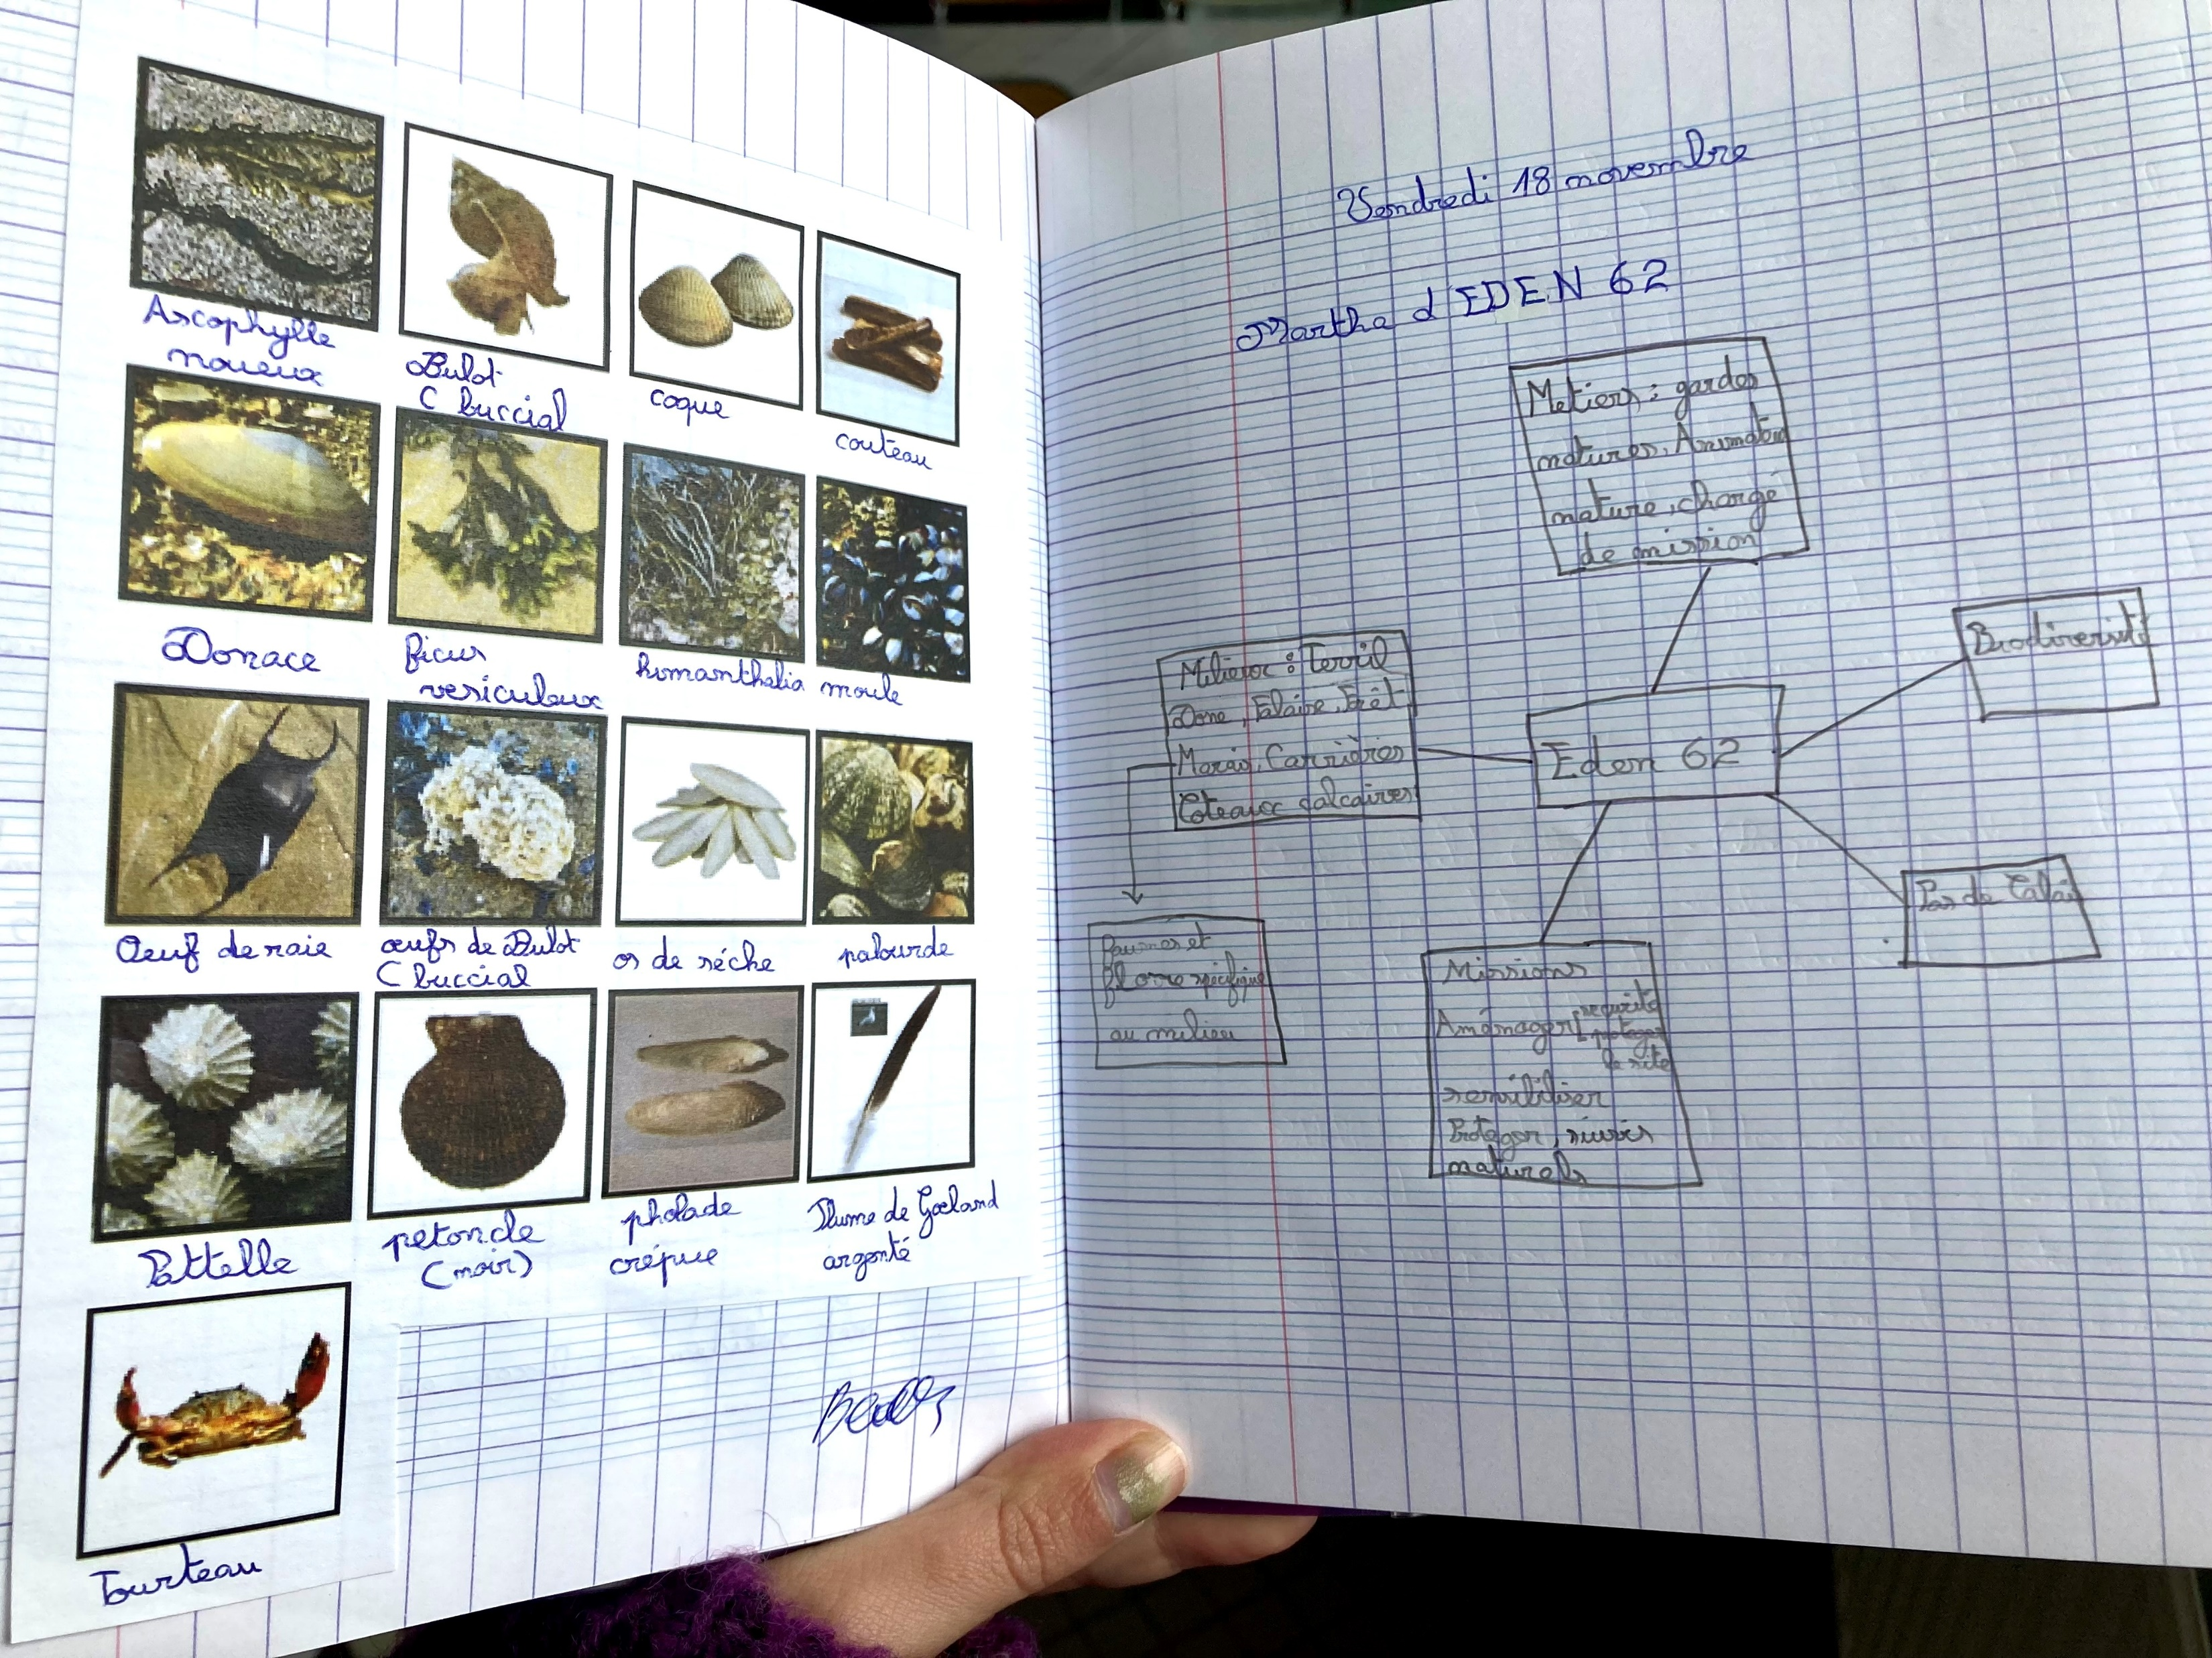 Ascophylle
noueux
Bulot
C buccial
coque
couteau
Donace
ficus
vesiculeux
himanthalia
moule
Œuf de raie
œufs de Bulot
C buccial
os de séche
palourde
Pattelle
petoncle
(noir)
pholade
crépue
Plume de Goeland
argenté
Tourteau
Vendredi 18 novembre
Martha d'EDEN 62
Metiers : gardes
natures, Animateur
nature, chargé
de mission
Biodiversité
Milieux : Terril
Dune, Falaise, Forêt
Marais, Carrières
Coteaux calcaires
Eden 62
Pas de Calais
Faunes et
flore spécifique
au milieu
Missions
Aménager sécurité
protéger
le site
sensibiliser
Proteger,
naturels